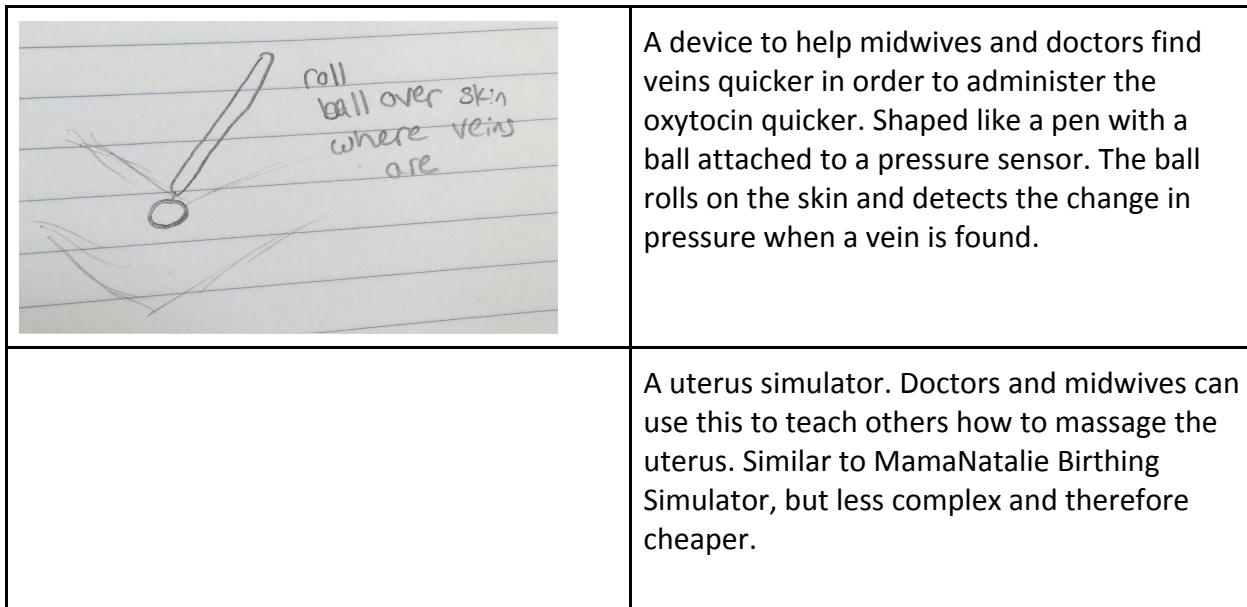 roll
ball over skin
where veins
are
A device to help midwives and doctors find
veins quicker in order to administer the
oxytocin quicker. Shaped like a pen with a
ball attached to a pressure sensor. The ball
rolls on the skin and detects the change in
pressure when a vein is found.
A uterus simulator. Doctors and midwives can
use this to teach others how to massage the
uterus. Similar to MamaNatalie Birthing
Simulator, but less complex and therefore
cheaper.